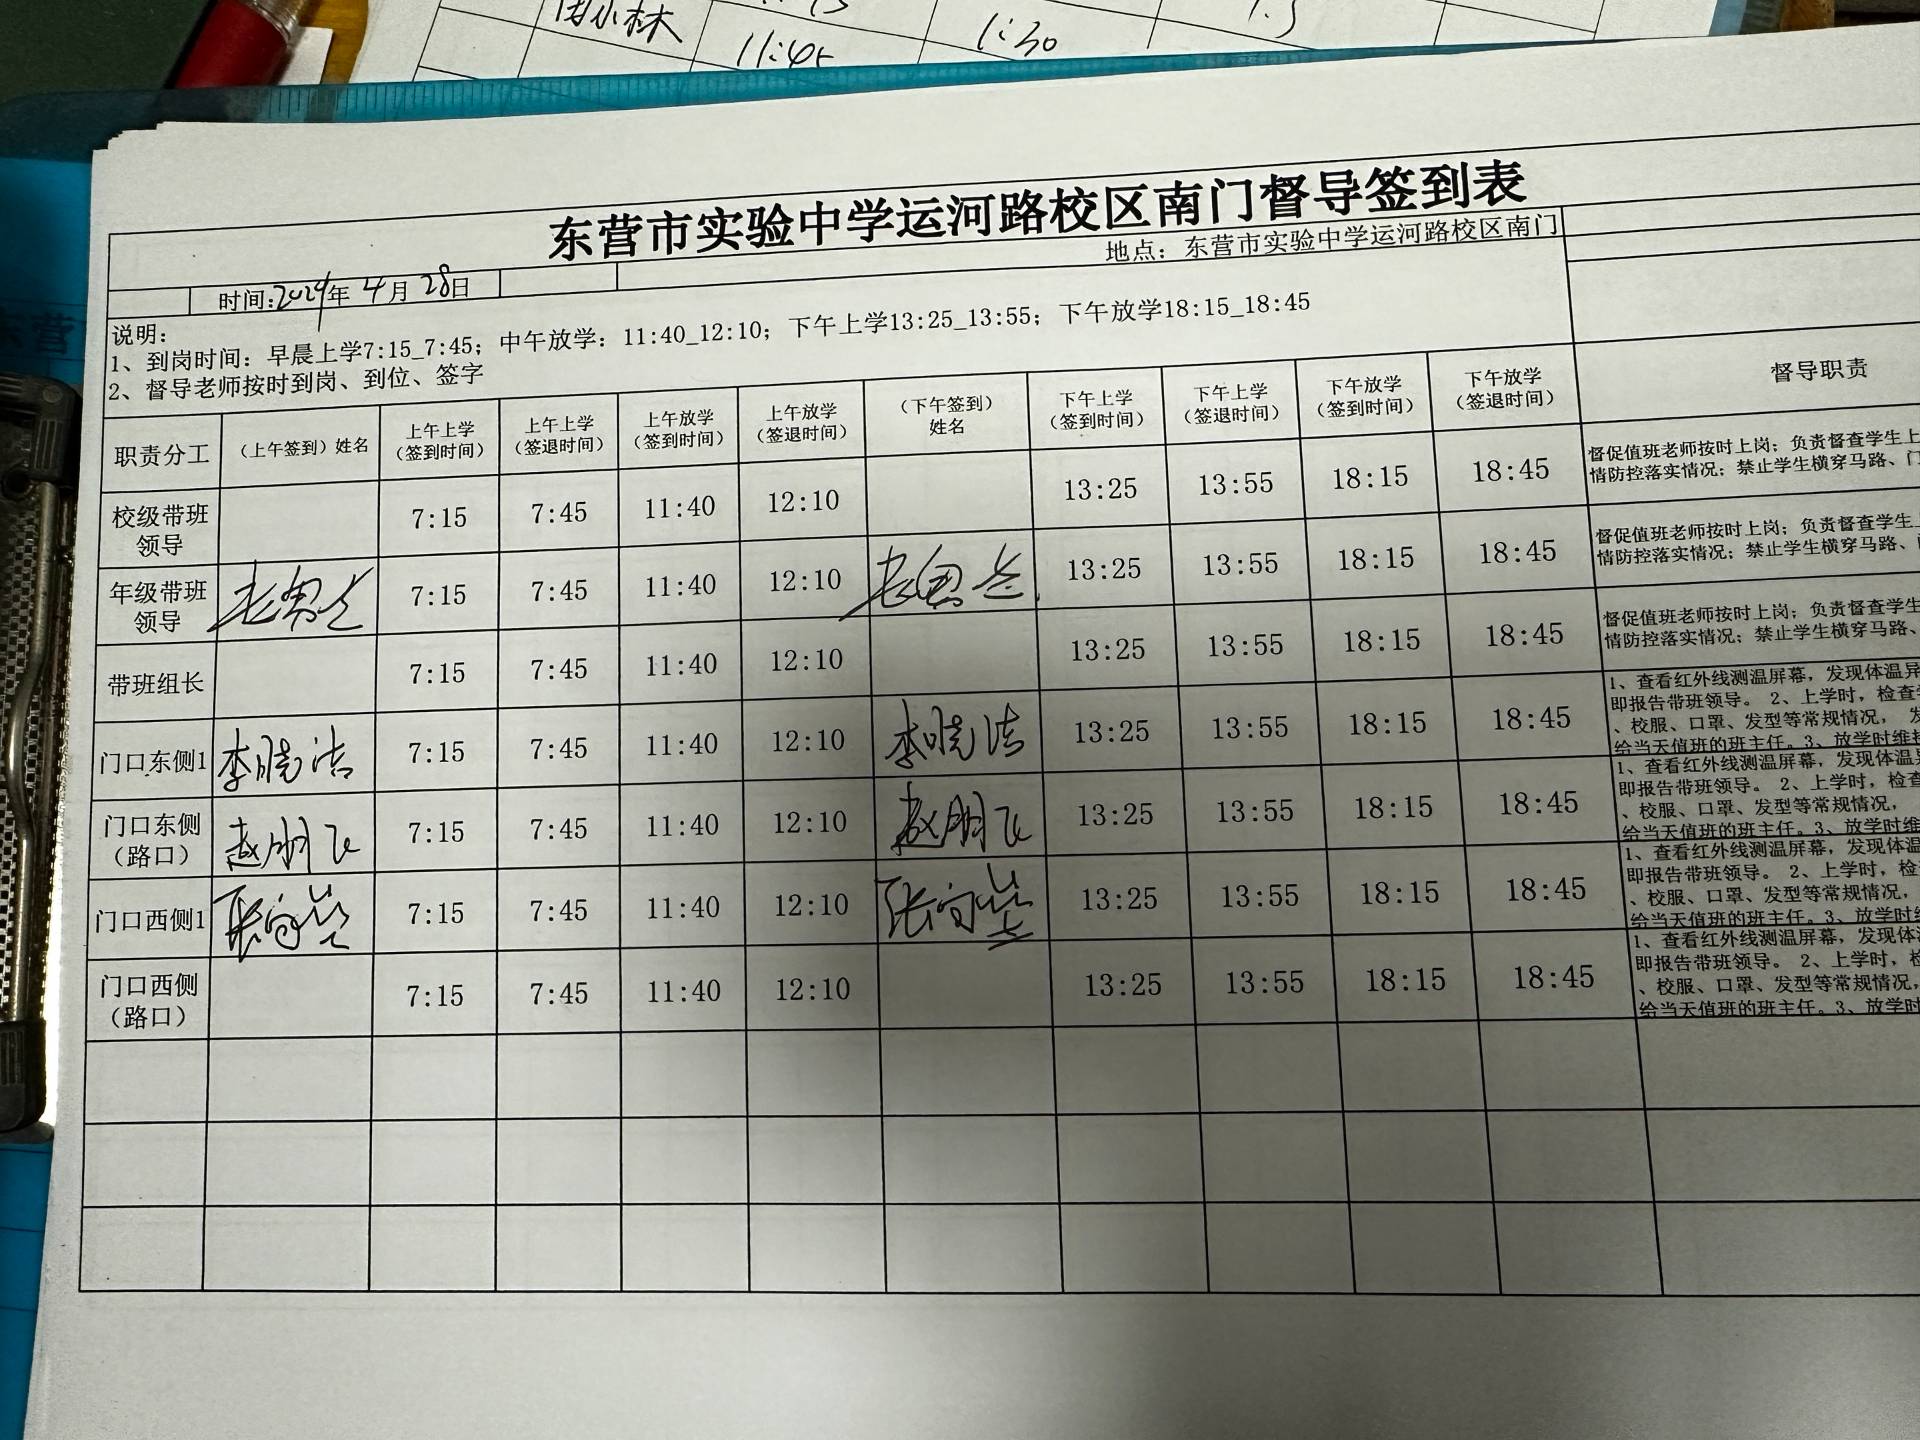 11:45
1:30
东营市实验中学运河路校区南门督导签到表
地点：东营市实验中学运河路校区南门
时间:2024年 4月 28日
说明：
1、到岗时间：早晨上学7:15_7:45；中午放学：11:40_12:10；下午上学13:25_13:55；下午放学18:15_18:45
2、督导老师按时到岗、到位、签字
职责分工 （上午签到）姓名 上午上学（签到时间） 上午上学（签退时间） 上午放学（签到时间） 上午放学（签退时间） （下午签到）姓名 下午上学（签到时间） 下午上学（签退时间） 下午放学（签到时间） 下午放学（签退时间） 督导职责
校级带班领导 7:15 7:45 11:40 12:10 13:25 13:55 18:15 18:45
督促值班老师按时上岗；负责督查学生上
情防控落实情况；禁止学生横穿马路、门
年级带班领导 7:15 7:45 11:40 12:10 13:25 13:55 18:15 18:45
督促值班老师按时上岗；负责督查学生
情防控落实情况；禁止学生横穿马路、
带班组长 7:15 7:45 11:40 12:10 13:25 13:55 18:15 18:45
督促值班老师按时上岗；负责督查学生
情防控落实情况；禁止学生横穿马路、
门口东侧1 李晓洁 7:15 7:45 11:40 12:10 李晓洁 13:25 13:55 18:15 18:45
1、查看红外线测温屏幕，发现体温异
即报告带班领导。 2、上学时，检查
、校服、口罩、发型等常规情况，
给当天值班的班主任。3、放学时维持
门口东侧（路口） 赵朋飞 7:15 7:45 11:40 12:10 赵朋飞 13:25 13:55 18:15 18:45
1、查看红外线测温屏幕，发现体温
即报告带班领导。 2、上学时，检查
、校服、口罩、发型等常规情况，
给当天值班的班主任。3、放学时维
门口西侧1 7:15 7:45 11:40 12:10 13:25 13:55 18:15 18:45
1、查看红外线测温屏幕，发现体温
即报告带班领导。 2、上学时，检
、校服、口罩、发型等常规情况，
给当天值班的班主任。3、放学时
门口西侧（路口） 7:15 7:45 11:40 12:10 13:25 13:55 18:15 18:45
1、查看红外线测温屏幕，发现体
即报告带班领导。 2、上学时，
、校服、口罩、发型等常规情况，
给当天值班的班主任。3、放学时